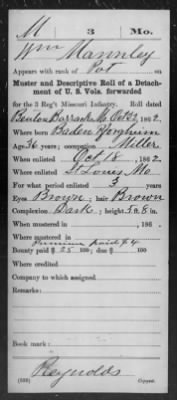 M | 3 | Mo.
Wm Mannley
Appears with rank of Pvt on
Muster and Descriptive Roll of a Detach-
ment of U. S. Vols. forwarded
for the 3 Reg't Missouri Infantry. Roll dated
Benton Barracks Mo Oct 22, 1862.
Where born Baden
Age 36 years; occupation Miller
When enlisted Oct 18, 1862.
Where enlisted St Louis Mo
For what period enlisted 3 years.
Eyes Brown; hair Brown
Complexion Dark; height 5 ft. 8 in.
When mustered in , 186 .
Where mustered in
Premium paid $4
Bounty paid $ 25 100; due $ 100
Where credited
Company to which assigned
Remarks:
Book mark:
Reynolds
Copyist.